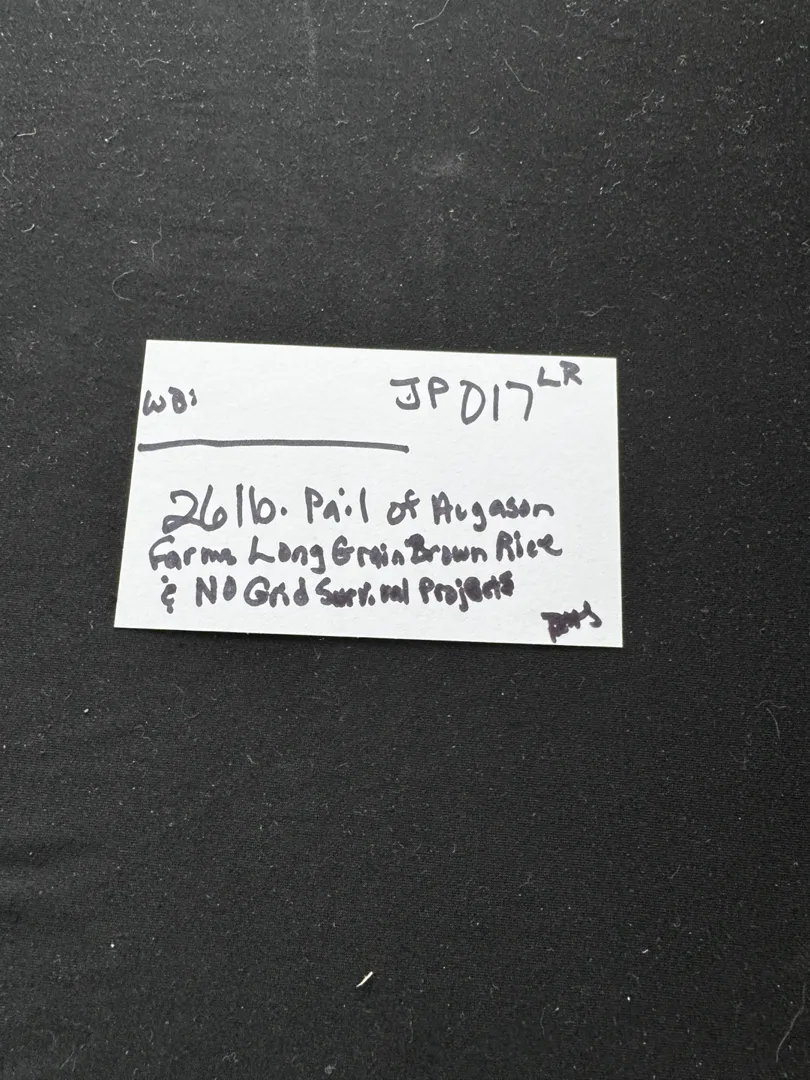 WB: JP017 LR
26 lb. Pail of Augason
Farms Long Grain Brown Rice
& NO Grid Survival Projects